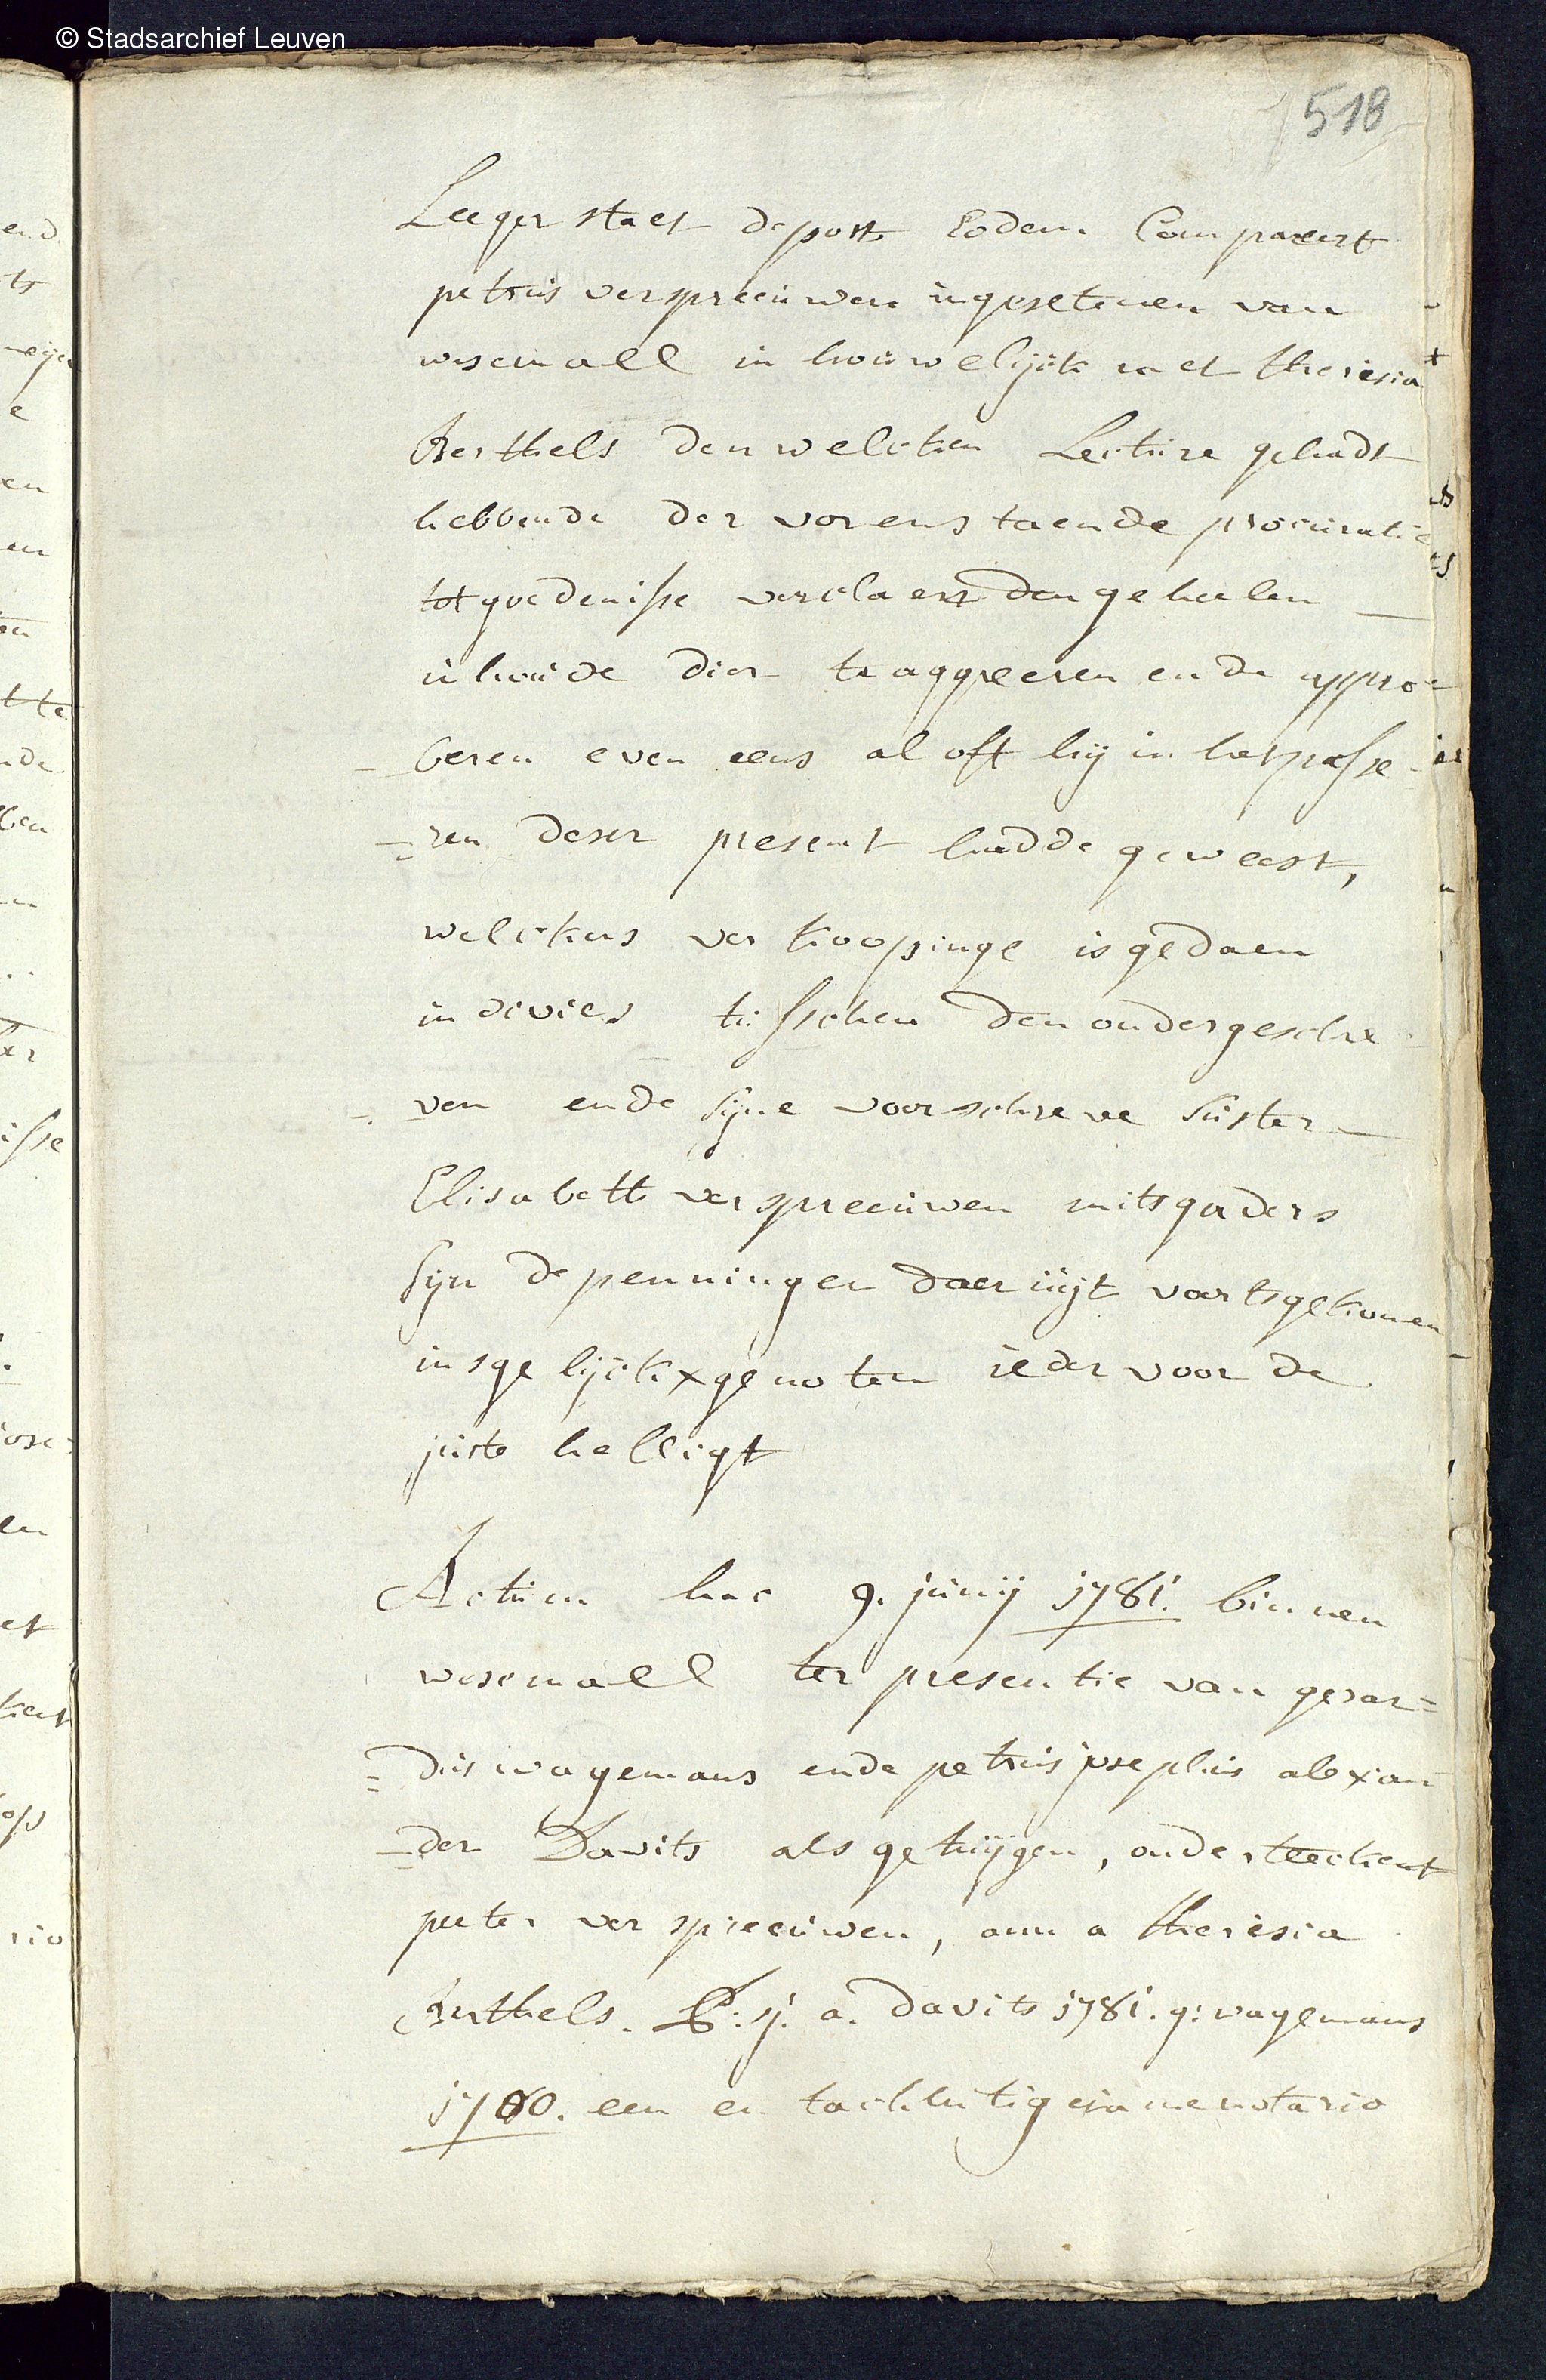 © Stadsarchief Leuven
518
Leeger staet depost Eodem Compareert
petrus verspreeuwen ingesetenen van
wesemall in houwelijck met theresia
Berthels den welcken Lecture gehadt
hebbende der vorenstaende procuratie
tot goedenisse verclaert den geheelen
inhoude dier te aggreeren ende appro=
=beren even eens al oft hij in het passe=
=ren deser present hadde geweest,
welckens verkoopinge is gedaen
indivies tusschen den ondergeschre=
=ven ende sijne voorschreve suster
Elisabeth verspreeuwen mitsgaders
sijn de penningen daer uijt voortsgekomen
insgelijckx genoten ieder voor de
juste helligt
Actum hac 9. junij 1781. binnen
wesemall ter presentie van gerar=
=dus wagemans ende petrus josephus alexan=
=der Davits als getuijgen, onderteekent
peeter verspreeuwen, anna theresia
Berthels. P: j: a. Davits 1781. g: wagemans
1700. een en tachtentig et me notario